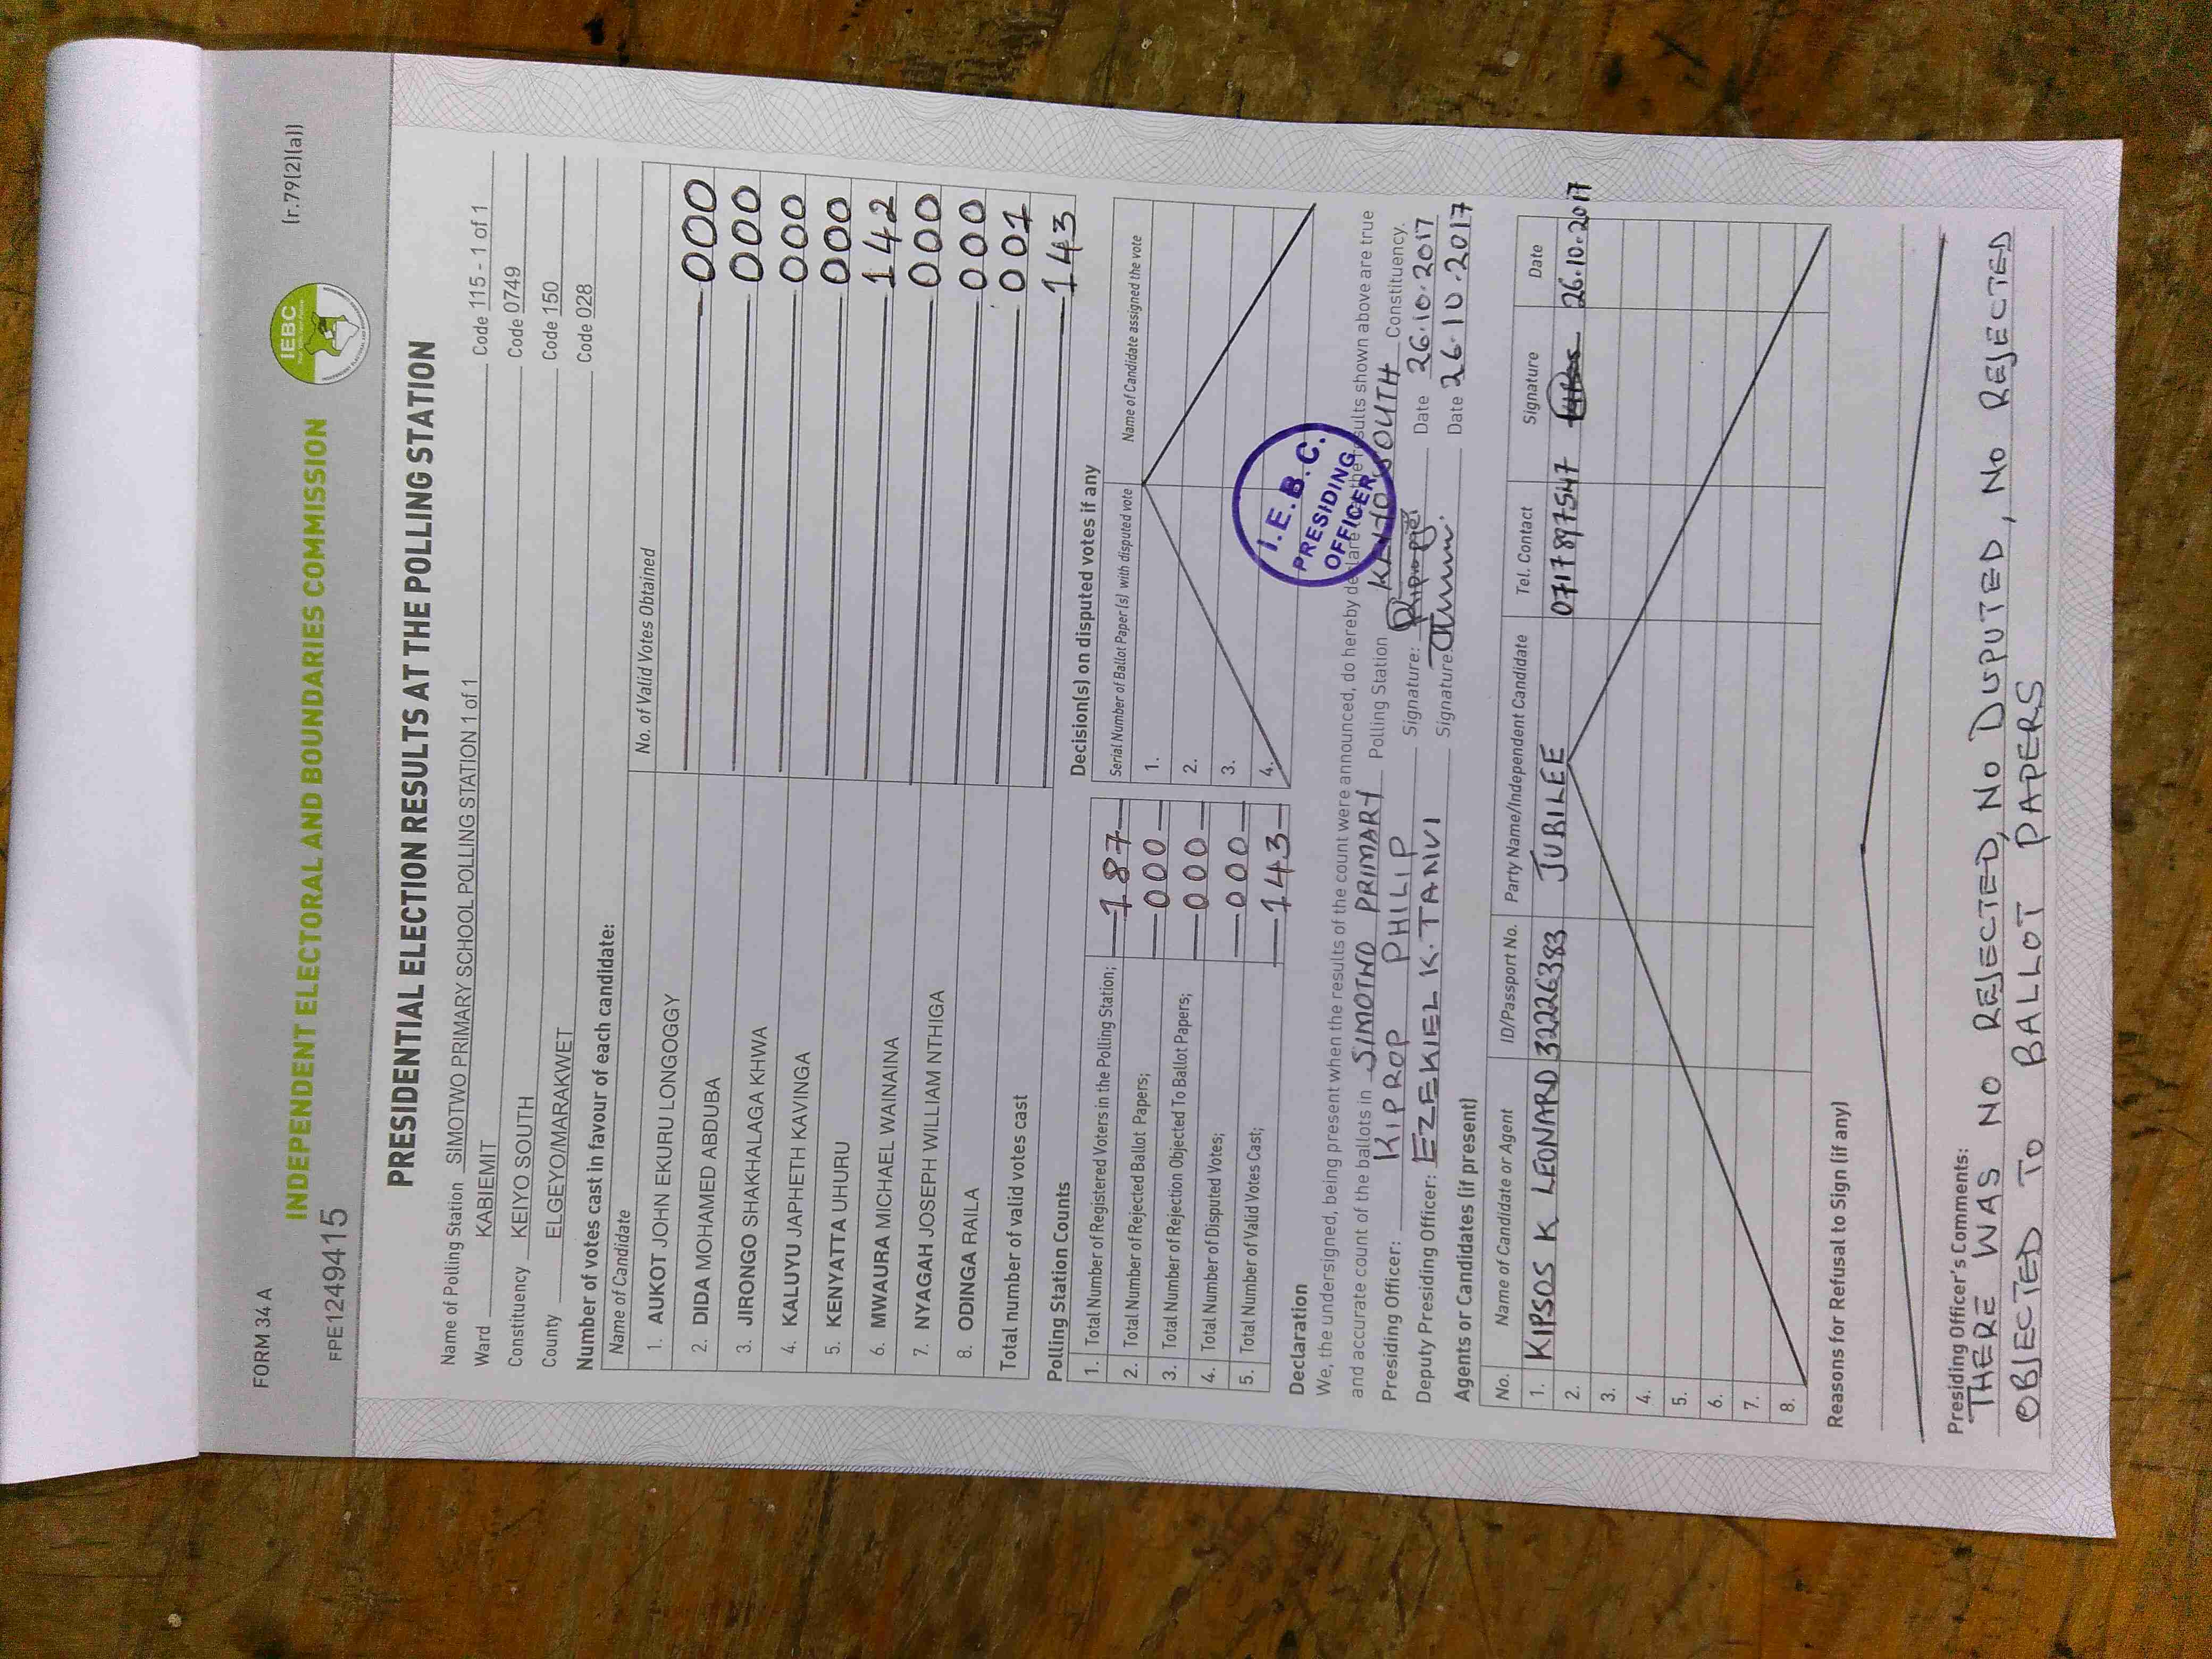 FORM 34 A
INDEPENDENT ELECTORAL AND BOUNDARIES COMMISSION
IEBC
(r.79(2)(a))
FPE1249415
PRESIDENTIAL ELECTION RESULTS AT THE POLLING STATION
Name of Polling Station SIMOTWO PRIMARY SCHOOL POLLING STATION 1 of 1 Code 115 - 1 of 1
Ward KABIEMIT Code 0749
Constituency KEIYO SOUTH Code 150
County ELGEYO/MARAKWET Code 028
Number of votes cast in favour of each candidate:
Name of Candidate No. of Valid Votes Obtained
1. AUKOT JOHN EKURU LONGOGGY 000
2. DIDA MOHAMED ABDUBA 000
3. JIRONGO SHAKHALAGA KHWA 000
4. KALUYU JAPHETH KAVINGA 000
5. KENYATTA UHURU 142
6. MWAURA MICHAEL WAINAINA 000
7. NYAGAH JOSEPH WILLIAM NTHIGA 000
8. ODINGA RAILA 001
Total number of valid votes cast 143
Polling Station Counts
1. Total Number of Registered Voters in the Polling Station; 187
2. Total Number of Rejected Ballot Papers; 000
3. Total Number of Rejection Objected To Ballot Papers; 000
4. Total Number of Disputed Votes; 000
5. Total Number of Valid Votes Cast; 143
Decision(s) on disputed votes if any
Serial Number of Ballot Paper(s) with disputed vote Name of Candidate assigned the vote
1.
2.
3.
4.
I.E.B.C.
PRESIDING
OFFICER
Declaration
We, the undersigned, being present when the results of the count were announced, do hereby declare that the results shown above are true
and accurate count of the ballots in SIMOTWO PRIMARY Polling Station KEIYO SOUTH Constituency.
Presiding Officer: KIPROP PHILIP Signature: Date 26.10.2017
Deputy Presiding Officer: EZEKIEL K. TANUI Signature Date 26.10.2017
Agents or Candidates (if present)
No. Name of Candidate or Agent ID/Passport No. Party Name/Independent Candidate Tel. Contact Signature Date
1. KIPSOS K LEONARD 32226383 JUBILEE 0717897547 26.10.2017
2.
3.
4.
5.
6.
7.
8.
Reasons for Refusal to Sign (if any)
Presiding Officer's Comments:
THERE WAS NO REJECTED, NO DUPUTED, NO REJECTED
OBJECTED TO BALLOT PAPERS